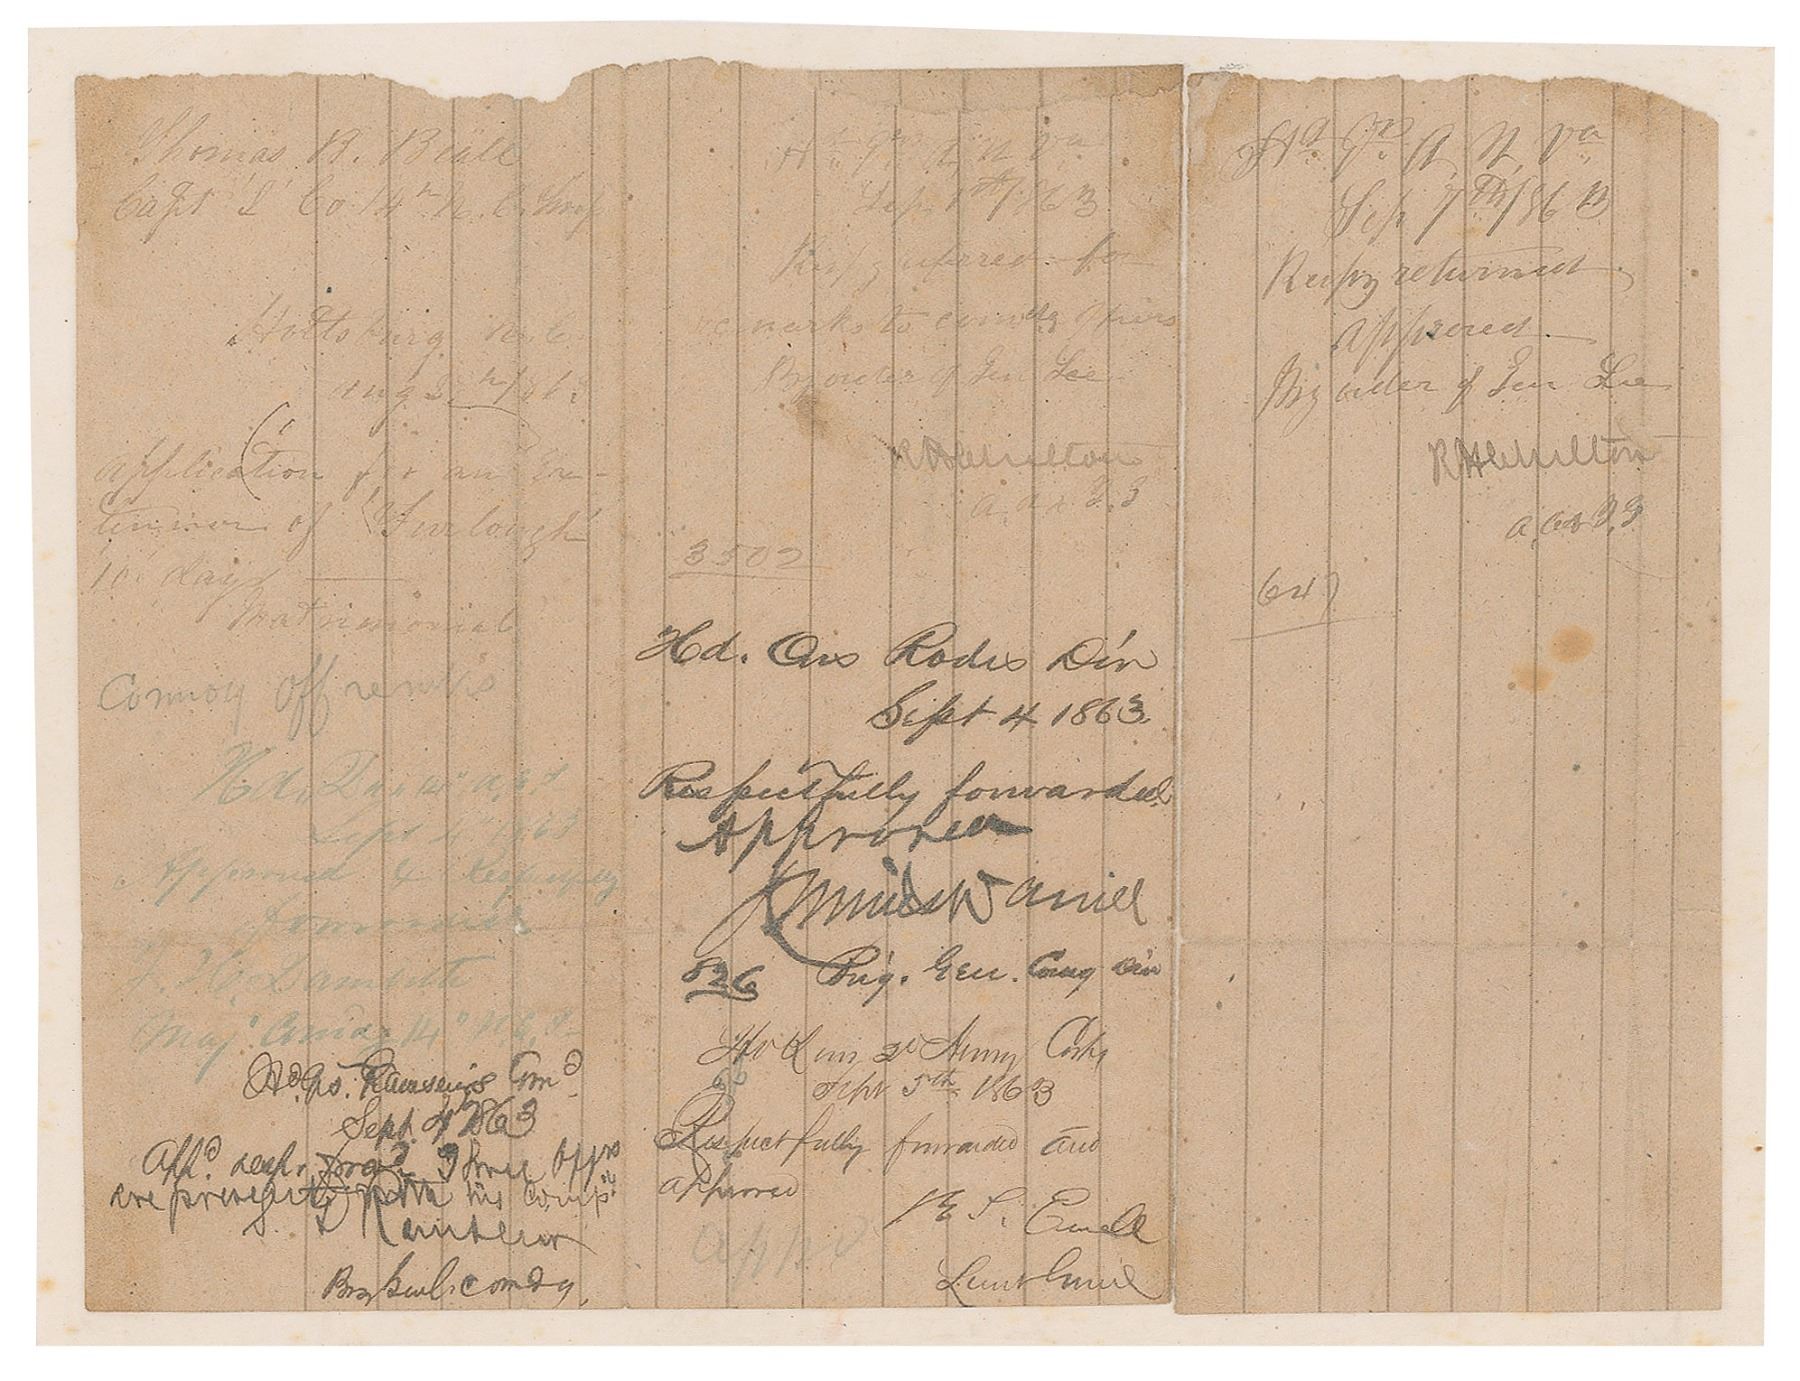 Thomas B. Beall
Capt "I" Co 14th N. C. Troops
Holtsburg N. C.
Aug
Application for an Ex-
tension of Furlough
10 days
Matrimonial
Comdg Off remks
Hd. Qrs 14"
Sept 4" 1863
Approved & Respctfly
forwarded
Maj" Comdg 14" N. C. T.
Hd. Qrs. Ramseurs Com'd
Sept. 4th 1863
App'd Three Offrs
are present with his Comp'y
Ramseur
Brig Genl. comdg.
Hd Qrs A N Va
Sep 1863
Resp'y referred for
remarks to comdg offrs
By order of Gen Lee
R H Chilton
A. A & I. G
3507
Hd. Qrs Rodes Div
Sept 4 1863
Respectfully forwarded
Approved
Junius Daniel
826 Brig. Gen. Comg Div
Hd Qrs 2d Army Corps
Sept 5th 1863
Respectfully forwarded and
approved
R. S. Ewell
Lieut Genl
appd
Hd Qrs A N Va
Sep 7th/1863
Respy returned
approved
By order of Gen Lee
R H Chilton
A. A & I. G
647